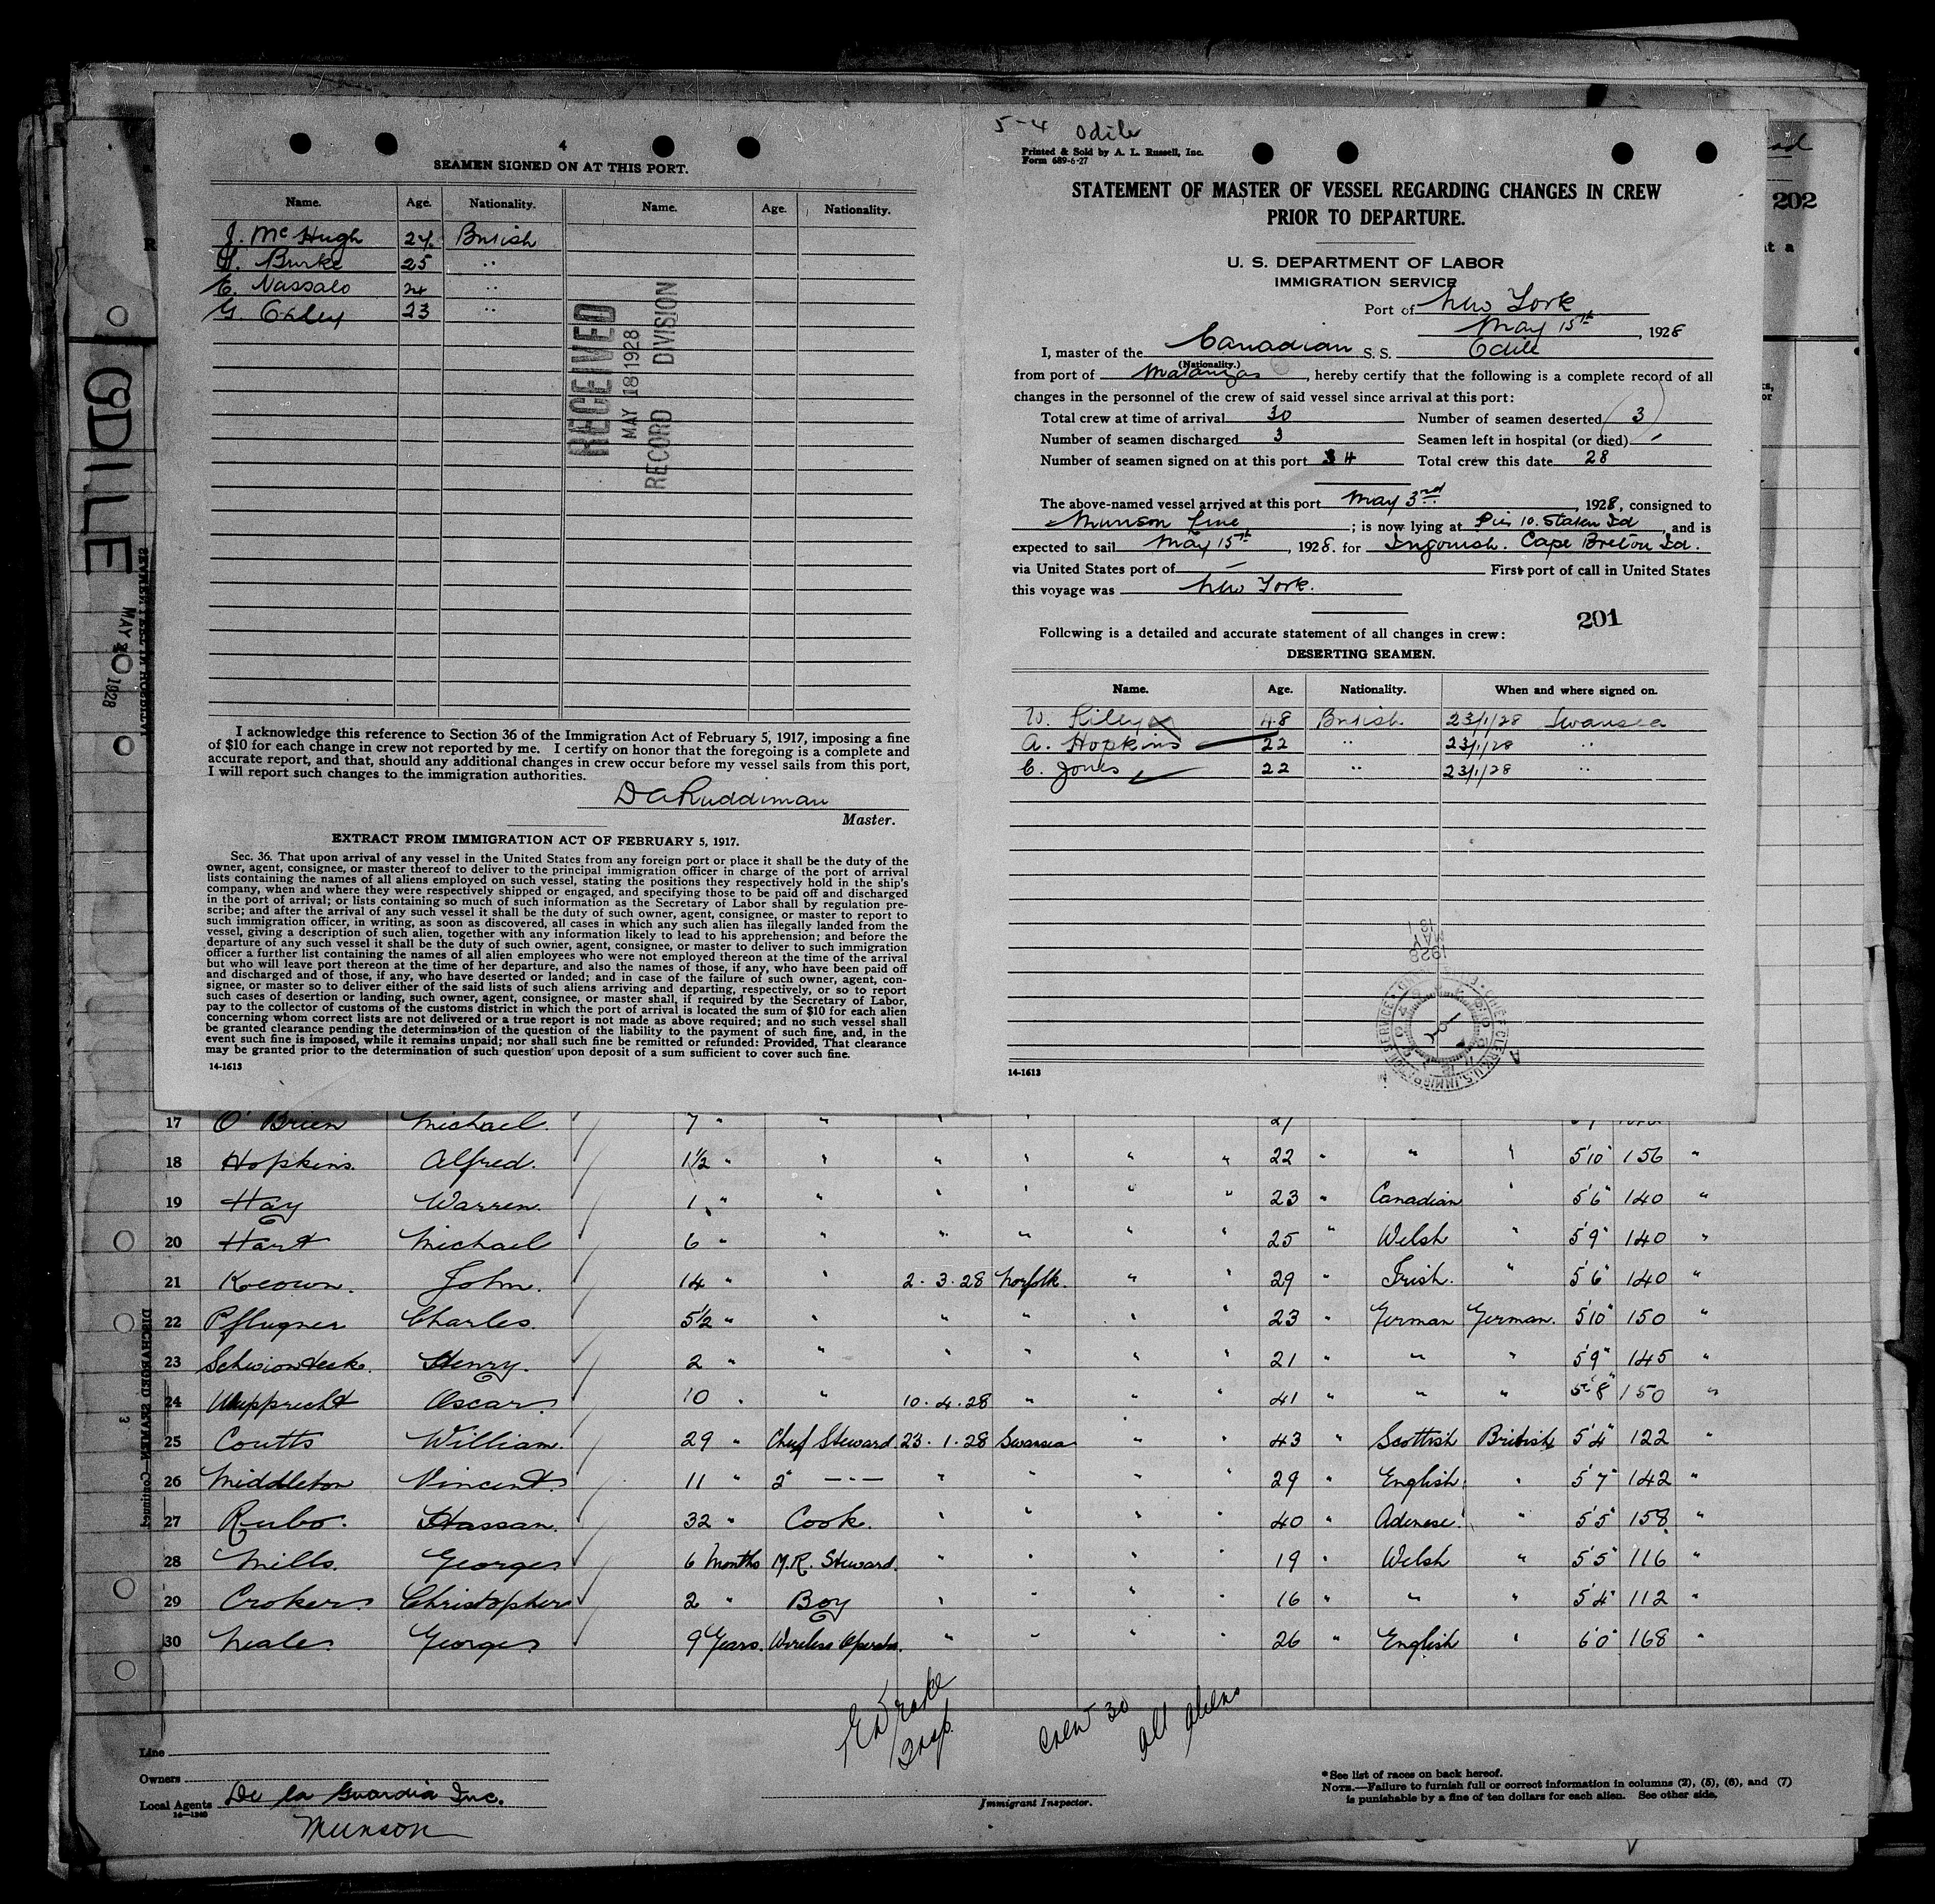 4
SEAMEN SIGNED ON AT THIS PORT.
Name. Age. Nationality. Name. Age. Nationality.
J. McHugh 24 British
H. Burke 25 "
E. Nassalo 24 "
G. Oxley 23 "
RECEIVED
MAY 18 1928
RECORD DIVISION
I acknowledge this reference to Section 36 of the Immigration Act of February 5, 1917, imposing a fine
of $10 for each change in crew not reported by me. I certify on honor that the foregoing is a complete and
accurate report, and that, should any additional changes in crew occur before my vessel sails from this port,
I will report such changes to the immigration authorities.
D A Ruddiman
Master.
EXTRACT FROM IMMIGRATION ACT OF FEBRUARY 5, 1917.
Sec. 36. That upon arrival of any vessel in the United States from any foreign port or place it shall be the duty of the
owner, agent, consignee, or master thereof to deliver to the principal immigration officer in charge of the port of arrival
lists containing the names of all aliens employed on such vessel, stating the positions they respectively hold in the ship's
company, when and where they were respectively shipped or engaged, and specifying those to be paid off and discharged
in the port of arrival; or lists containing so much of such information as the Secretary of Labor shall by regulation pre-
scribe; and after the arrival of any such vessel it shall be the duty of such owner, agent, consignee, or master to report to
such immigration officer, in writing, as soon as discovered, all cases in which any such alien has illegally landed from the
vessel, giving a description of such alien, together with any information likely to lead to his apprehension; and before the
departure of any such vessel it shall be the duty of such owner, agent, consignee, or master to deliver to such immigration
officer a further list containing the names of all alien employees who were not employed thereon at the time of the arrival
but who will leave port thereon at the time of her departure, and also the names of those, if any, who have been paid off
and discharged and of those, if any, who have deserted or landed; and in case of the failure of such owner, agent, con-
signee, or master so to deliver either of the said lists of such aliens arriving and departing, respectively, or so to report
such cases of desertion or landing, such owner, agent, consignee, or master shall, if required by the Secretary of Labor,
pay to the collector of customs of the customs district in which the port of arrival is located the sum of $10 for each alien
concerning whom correct lists are not delivered or a true report is not made as above required; and no such vessel shall
be granted clearance pending the determination of the question of the liability to the payment of such fine, and, in the
event such fine is imposed, while it remains unpaid; nor shall such fine be remitted or refunded: Provided, That clearance
may be granted prior to the determination of such question upon deposit of a sum sufficient to cover such fine.
14-1613
5-4 Odile
Printed & Sold by A. L. Russell, Inc.
Form 689-6-27
STATEMENT OF MASTER OF VESSEL REGARDING CHANGES IN CREW
PRIOR TO DEPARTURE.
U. S. DEPARTMENT OF LABOR
IMMIGRATION SERVICE
Port of New York
May 15th, 1928
I, master of the Canadian S. S. Odile
(Nationality.)
from port of Matanzas, hereby certify that the following is a complete record of all
changes in the personnel of the crew of said vessel since arrival at this port:
Total crew at time of arrival 30 Number of seamen deserted 3
Number of seamen discharged 3 Seamen left in hospital (or died) -
Number of seamen signed on at this port 4 Total crew this date 28
The above-named vessel arrived at this port May 3rd, 1928, consigned to
Munson Line; is now lying at Pier 10. Staten Id, and is
expected to sail May 15th, 1928. for Ingonish. Cape Breton Id.
via United States port of - First port of call in United States
this voyage was New York.
201
Following is a detailed and accurate statement of all changes in crew:
DESERTING SEAMEN.
Name. Age. Nationality. When and where signed on.
W. Riley 48 British 23/1/28 Swansea
A. Hopkins 22 " 23/1/28 "
C. Jones 22 " 23/1/28 "
1928
MAY
15
CHIEF CLERK, U.S. IMMIGRATION SERVICE
14-1613
202
ODILE
MAY 20 1928
DISCHARGED SEAMEN—Continued
3
17 O'Brien Michael. 7 "
18 Hopkins. Alfred. 1½ " " " " " " 22 " " " 5'10" 156 "
19 Hay Warren. 1 " " " " " " 23 " Canadian " 5'6" 140 "
20 Hart Michael 6 " " " " " 25 " Welsh " 5'9" 140 "
21 Keown. John. 14 " " 2.3.28 Norfolk. " " 29 " Irish. " 5'6" 140 "
22 Pflugner Charles. 5½ " " " " " " 23 " German German. 5'10" 150 "
23 Henry. 2 " " " " " " 21 " " " 5'9" 145 "
24 Oscar. 10 " " 10.4.28 " " " 41 " " " 5'8" 150 "
25 Coutts William. 29 " Chief Steward 23.1.28 Swansea " " 43 " Scottish British 5'4" 122 "
26 Middleton Vincent. 11 " 2" — " — " " " " 29 " English " 5'7" 142 "
27 Rubo. Hassan. 32 " Cook. " " " " 40 " Adenese " 5'5" 158 "
28 Mills. George 6 Months M.R. Steward. " " " " 19 " Welsh " 5'5" 116 "
29 Croker. Christopher 2 " Boy " " " " 16 " " " 5'4" 112 "
30 Neale George 9 Years. Wireless Operator. " " " " 26 " English " 6'0" 168 "
E Drake
Insp.
Crew 30
all aliens
Line
Owners
Local Agents De la Guardia Inc.
Munson
Immigrant Inspector.
*See list of races on back hereof.
NOTE.—Failure to furnish full or correct information in columns (2), (5), (6), and (7)
is punishable by a fine of ten dollars for each alien. See other side.